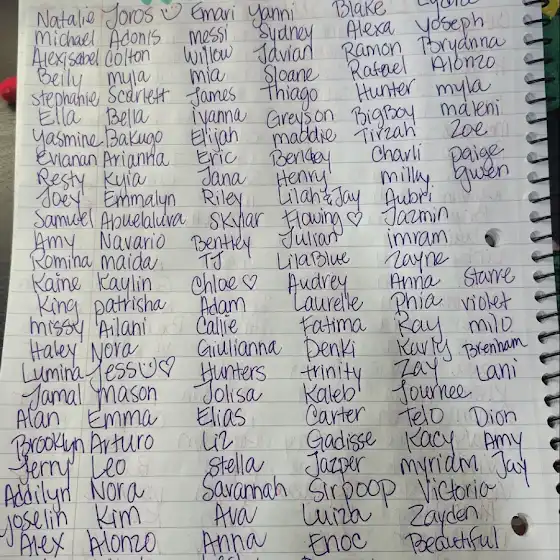 Natalie Joros Emari Yanni Blake
Michael Adonis messi Sydney Alexa Yoseph
Alexisabel Colton Willow Javian Ramon Bryanna
Beily myla mia Sloane Rafael Alonzo
Stephanie Scarlett James Thiago Hunter myla
Ella Bella ivanna Greyson BigBoy maleni
Yasmine Bakugo Elijah maddie Tirzah Zoe
Evianan Arianna Eric Berkley Charli paige
Resty Kyia Jana Henry milly Gwen
Joey Emmalyn Riley Lilah & Jay Aubri
Samuel Abuelaluva Skylar Flowing ♡ Jazmin
Amy Navario Bentley Julian imram
Romina maida TJ LilaBlue Zayne
Kaine Kaylin Chloe ♡ Audrey Anna Starre
King patrisha Adam Laurelle Phia violet
missy Ailani Callie Fatima Ray milo
Haley Nora Giulianna Denki Karly Brenham
Lumina Jess ♡ Hunters trinity Zay Lani
Jamal Mason Jolisa Kaleb Journee
Alan Emma Elias Carter Telo Dion
Brooklyn Arturo Liz Gadisse Kacy Amy
Jerry Leo Stella Jazper myriam Jay
Addilyn Nora Savannah Sir poop Victoria
Yoselin Kim Ava Luiza Zayden
Alex Alonzo Anna Enoc Beautiful